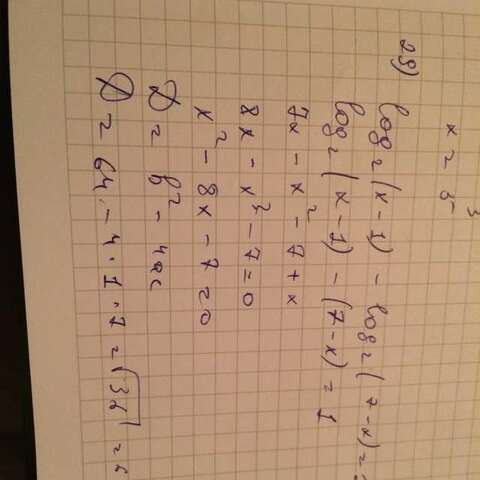 x = 5
29) log₂(x-1) - log₂(7-x) =
log₂(x-1) - (7-x) = 1
7x - x² - 7 + x
8x - x² - 7 = 0
x² - 8x - 7 = 0
D = b² - 4ac
D = 64 - 4·1·7 = √36 = 6